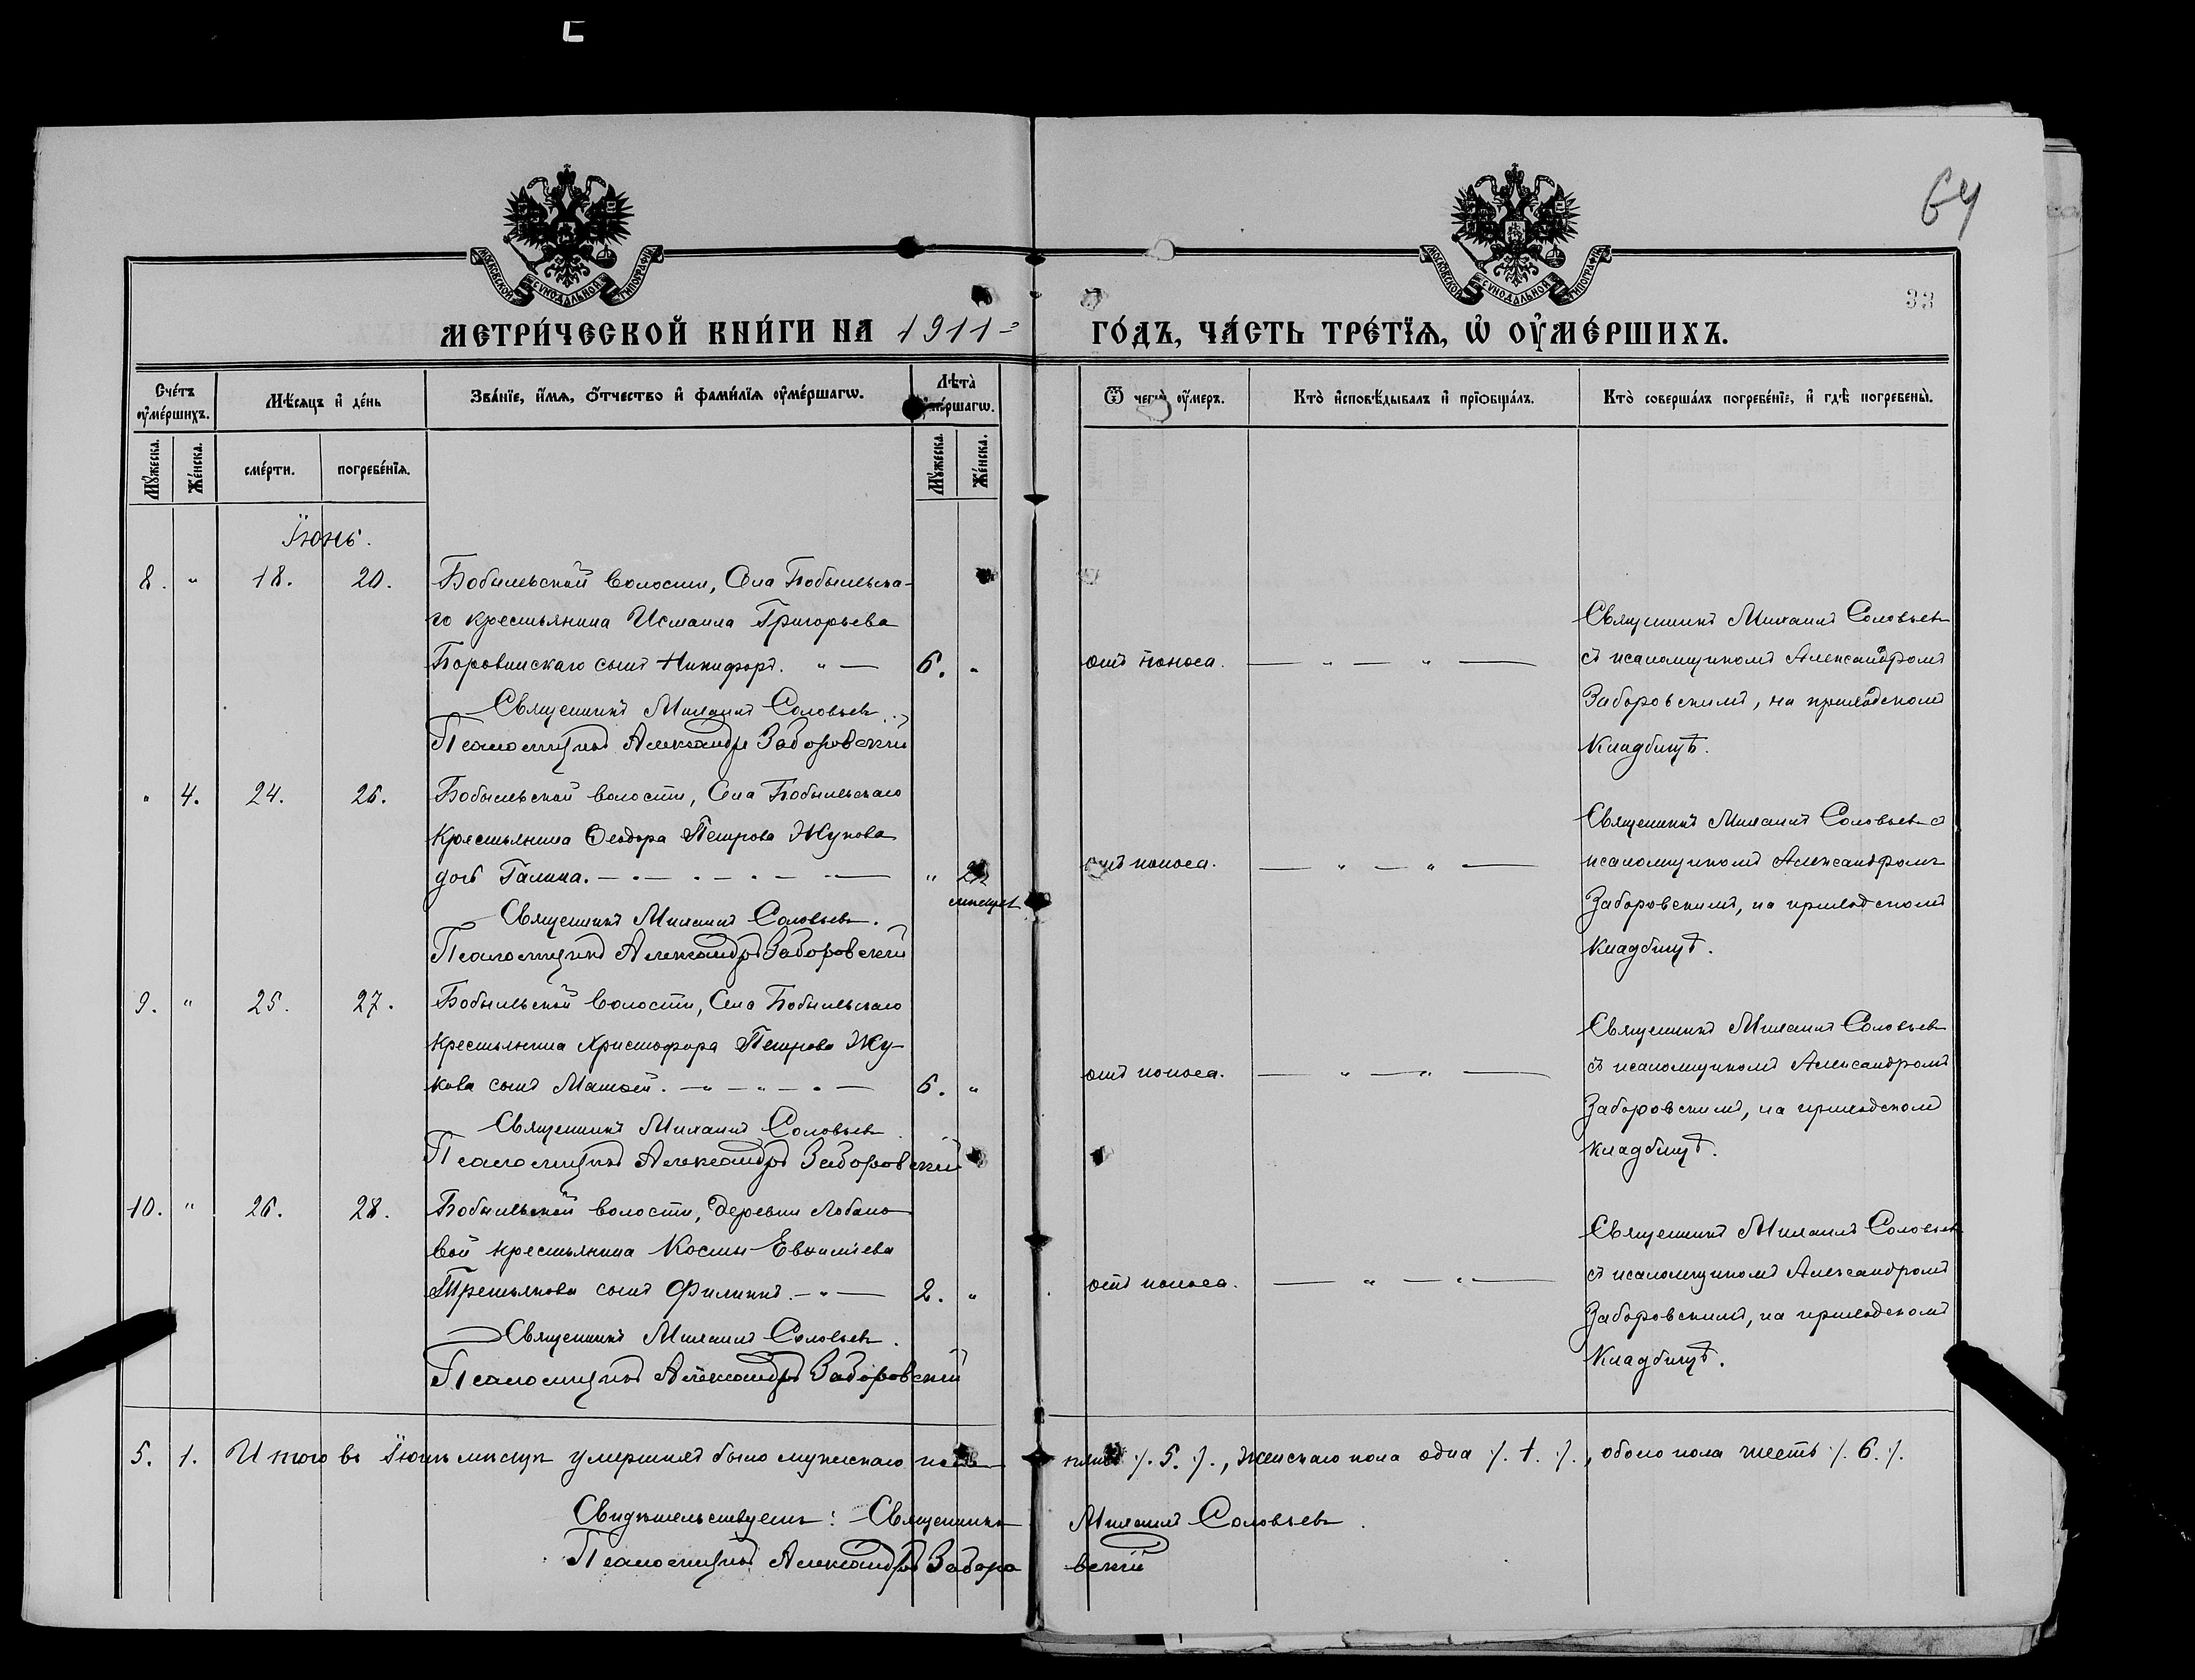 64
33
МОСКОВСКОЙ СѴНОДАЛЬНОЙ ТИПОГРАФІИ
МОСКОВСКОЙ СѴНОДАЛЬНОЙ ТИПОГРАФІИ
МЕТРИ́ЧЕСКОЙ КНИ́ГИ НА 1911 ГО́ДЪ, ЧА́СТЬ ТРЕ́ТЇѦ, Ѡ҆ ОУ҆МЕ́РШИХЪ.
Сче́тъ оу҆ме́ршихъ.
Мѣ́сѧцъ и҆ де́нь
Зва́нїе, и҆́мѧ, ѻ҆́тчество и҆ фами́лїѧ оу҆ме́ршагѡ.
Лѣ́та оу҆ме́ршагѡ.
Ѿ чегѡ̀ оу҆́меръ.
Кто̀ и҆сповѣ́дывалъ и҆ прїѻбща́лъ.
Кто̀ соверша́лъ погребе́нїе, и҆ гдѣ̀ погребены̀.
Мꙋ́жеска.
Же́нска.
сме́рти.
погребе́нїѧ.
Мꙋ́жеска.
Же́нска.
Іюнь.
8. " 18. 20. Бобыльской волости, Села Бобыльска-
го крестьянина Исмаила Григорьева
Боровинскаго сынъ Никифоръ. " — 6. " отъ поноса. — " — " —
Священникъ Михаилъ Соловьев
Псаломщикъ Александръ Заборовскій
Священникъ Михаилъ Соловьев
съ псаломщикомъ Александромъ
Заборовскимъ, на приходскомъ
кладбищѣ.
" 4. 24. 26. Бобыльской волости, Села Бобыльскаго
крестьянина Ѳеодора Петрова Жукова
дочь Галина. " отъ поноса. — " — " —
месяцев
Священникъ Михаилъ Соловьев.
Псаломщикъ Александръ Заборовскій
Священникъ Михаилъ Соловьев с
псаломщикомъ Александромъ
Заборовскимъ, на приходскомъ
кладбищѣ.
9. " 25. 27. Бобыльской волости, Села Бобыльскаго
крестьянина Христофора Петрова Жу-
кова сынъ Матѳей. — " — " — " — 6. " отъ поноса. — " — " —
Священникъ Михаилъ Соловьев.
Псаломщикъ Александръ Заборовскій
Священникъ Михаилъ Соловьев
съ псаломщикомъ Александромъ
Заборовскимъ, на приходскомъ
кладбищѣ.
10. " 26. 28. Бобыльской волости, деревни Лобано-
вой крестьянина Космы Евѳиміева
Третьякова сынъ Филиппъ. — " — 2. " отъ поноса. — " — " —
Священникъ Михаилъ Соловьев.
Псаломщикъ Александръ Заборовскій
Священникъ Михаилъ Соловьев
съ псаломщикомъ Александромъ
Заборовскимъ, на приходскомъ
кладбищѣ.
5. 1. Итого въ Іюнѣ мѣсяцѣ умершихъ было мужескаго пола пять ⁒ 5. ⁒., женскаго пола одна ⁒ 1. ⁒., обоего пола шесть ⁒ 6. ⁒.
Свидѣтельствуемъ: Священникъ Михаилъ Соловьев.
Псаломщикъ Александръ Заборовскій